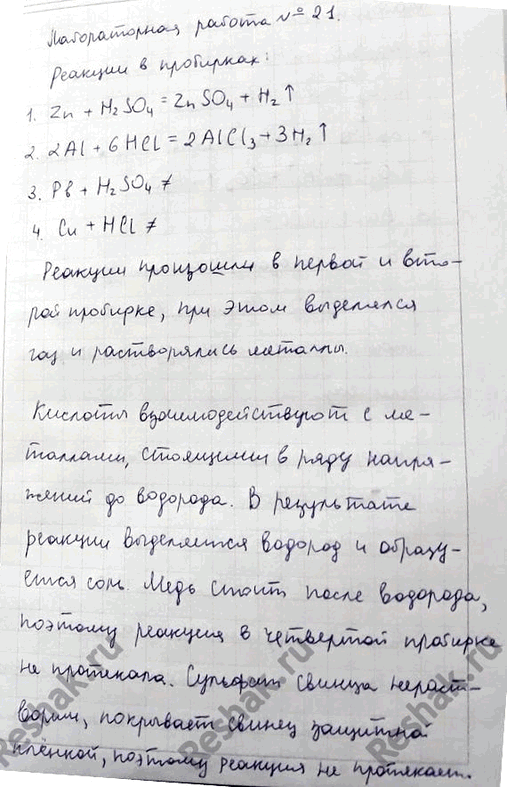 Лабораторная работа № 21.
Реакции в пробирках:
1. Zn + H₂SO₄ = ZnSO₄ + H₂↑
2. 2Al + 6HCl = 2AlCl₃ + 3H₂↑
3. Pb + H₂SO₄ ≠
4. Cu + HCl ≠
Реакции произошли в первой и вто-
рой пробирке, при этом выделялся
газ и растворялись металлы.
Кислоты взаимодействуют с ме-
таллами, стоящими в ряду напря-
жений до водорода. В результате
реакции выделяется водород и образу-
ется соль. Медь стоит после водорода,
поэтому реакция в четвертой пробирке
не протекала. Сульфат свинца нераст-
ворим, покрывает свинец защитной
плёнкой, поэтому реакция не протекает.
Reshak.ru
Reshak.ru
Reshak.ru